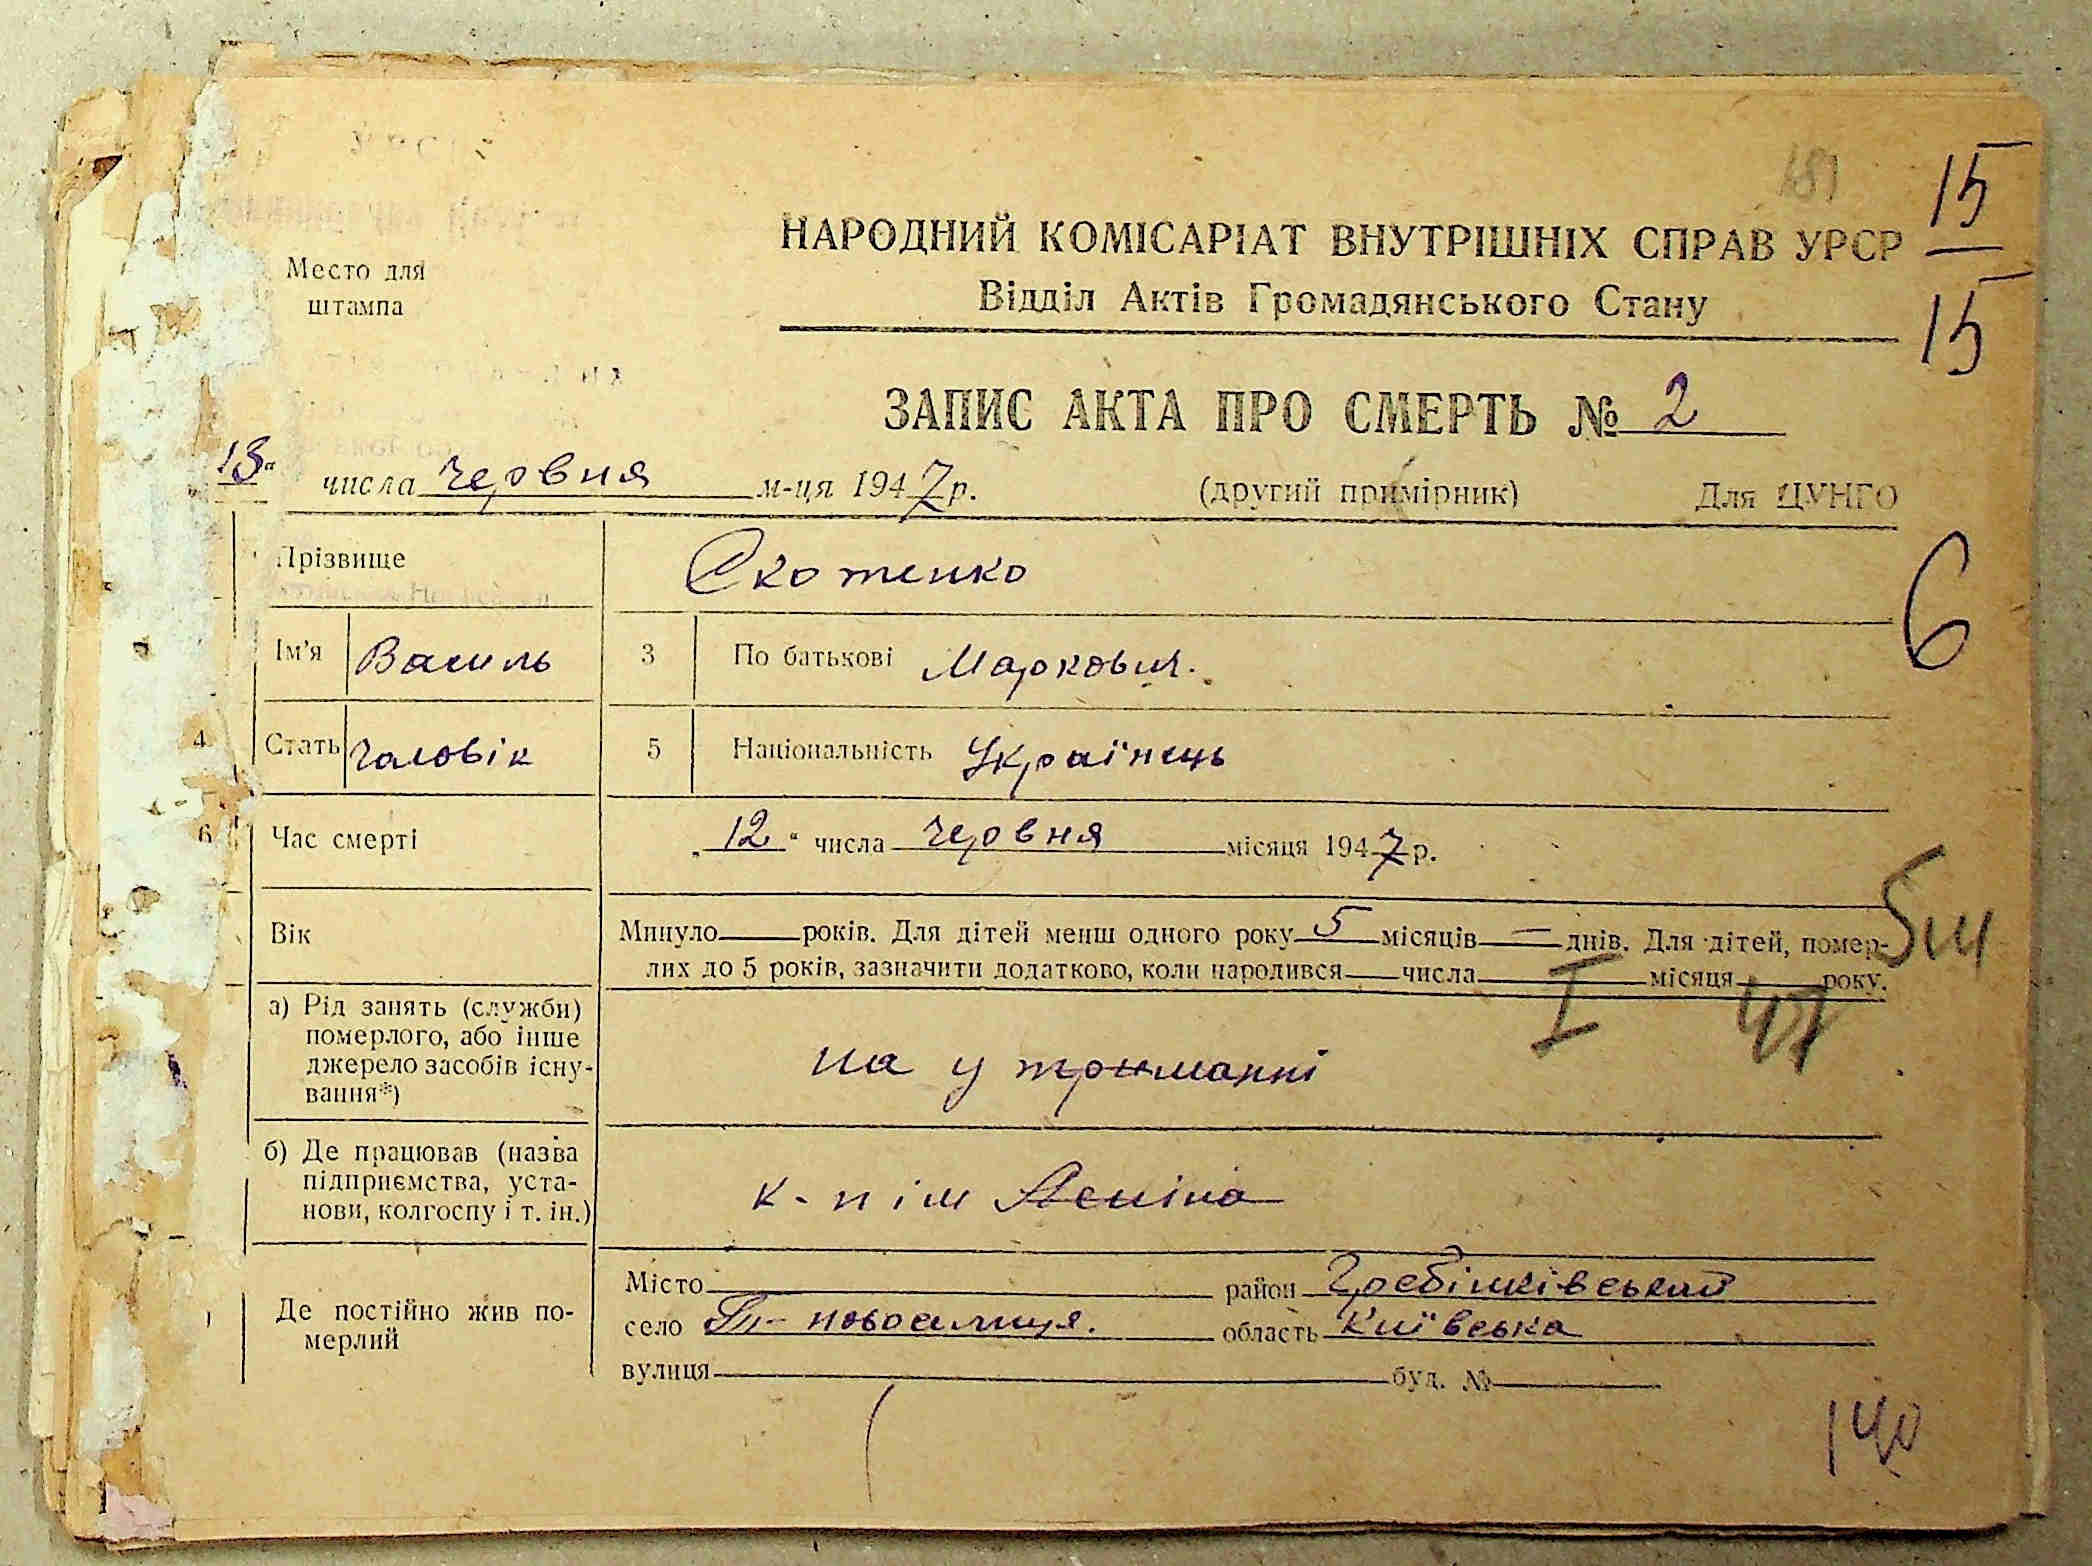 181
15
15
НАРОДНИЙ КОМІСАРІАТ ВНУТРІШНІХ СПРАВ УРСР
Відділ Актів Громадянського Стану
Место для
штампа
ЗАПИС АКТА ПРО СМЕРТЬ № 2
13" числа червня м-ця 1947 р. (другий примірник) Для ЦУНГО
6
Прізвище Скотенко
Ім'я Василь 3 По батькові Маркович.
4 Стать чоловік 5 Національність Українець
6 Час смерті „12" числа червня місяця 1947 р.
Вік Минуло років. Для дітей менш одного року 5 місяців — днів. Для дітей, помер-
лих до 5 років, зазначити додатково, коли народився числа місяця року.
5 м
I 47
а) Рід занять (служби)
померлого, або інше
джерело засобів існу-
вання*)
на у триманні
б) Де працював (назва
підприємства, уста-
нови, колгоспу і т. ін.)
к-п ім Леніна
Де постійно жив по-
мерлий
Місто район Гребінківський
село новоселиця. область Київська
вулиця буд. №
140